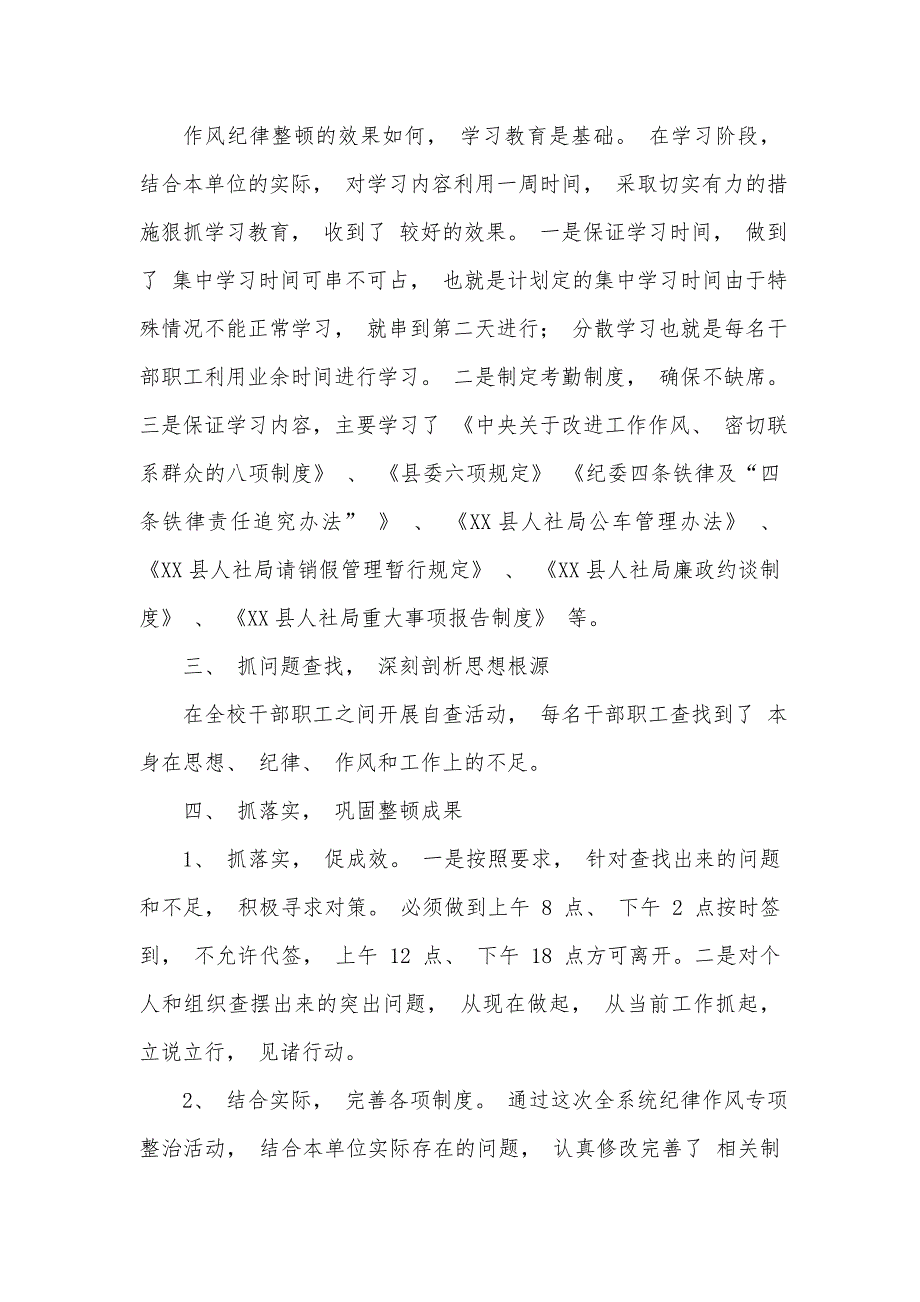 作风纪律整顿的效果如何， 学习教育是基础。 在学习阶段，
结合本单位的实际， 对学习内容利用一周时间， 采取切实有力的措
施狠抓学习教育， 收到了 较好的效果。 一是保证学习时间， 做到
了 集中学习时间可串不可占， 也就是计划定的集中学习时间由于特
殊情况不能正常学习， 就串到第二天进行； 分散学习也就是每名干
部职工利用业余时间进行学习。 二是制定考勤制度， 确保不缺席。
三是保证学习内容，主要学习了 《中央关于改进工作作风、 密切联
系群众的八项制度》 、 《县委六项规定》 《纪委四条铁律及“四
条铁律责任追究办法” 》 、 《XX 县人社局公车管理办法》 、
《XX 县人社局请销假管理暂行规定》 、 《XX 县人社局廉政约谈制
度》 、 《XX 县人社局重大事项报告制度》 等。
三、 抓问题查找， 深刻剖析思想根源
在全校干部职工之间开展自查活动， 每名干部职工查找到了 本
身在思想、 纪律、 作风和工作上的不足。
四、 抓落实， 巩固整顿成果
1、 抓落实， 促成效。 一是按照要求， 针对查找出来的问题
和不足， 积极寻求对策。 必须做到上午 8 点、 下午 2 点按时签
到， 不允许代签， 上午 12 点、 下午 18 点方可离开。二是对个
人和组织查摆出来的突出问题， 从现在做起， 从当前工作抓起，
立说立行， 见诸行动。
2、 结合实际， 完善各项制度。 通过这次全系统纪律作风专项
整治活动， 结合本单位实际存在的问题， 认真修改完善了 相关制